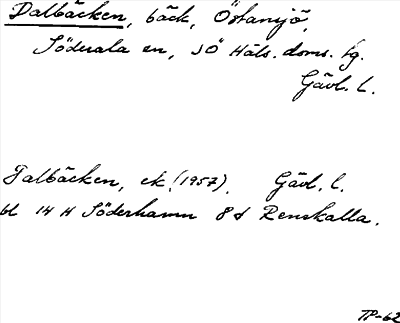 Dalbäcken, bäck, Östansjö,
Söderala sn, SÖ Häls. doms. tg.
Gävl. L.
Dalbäcken, ek. (1957). Gävl. L.
bl 14 H Söderhamn 8 d Renskalla.
TP-62